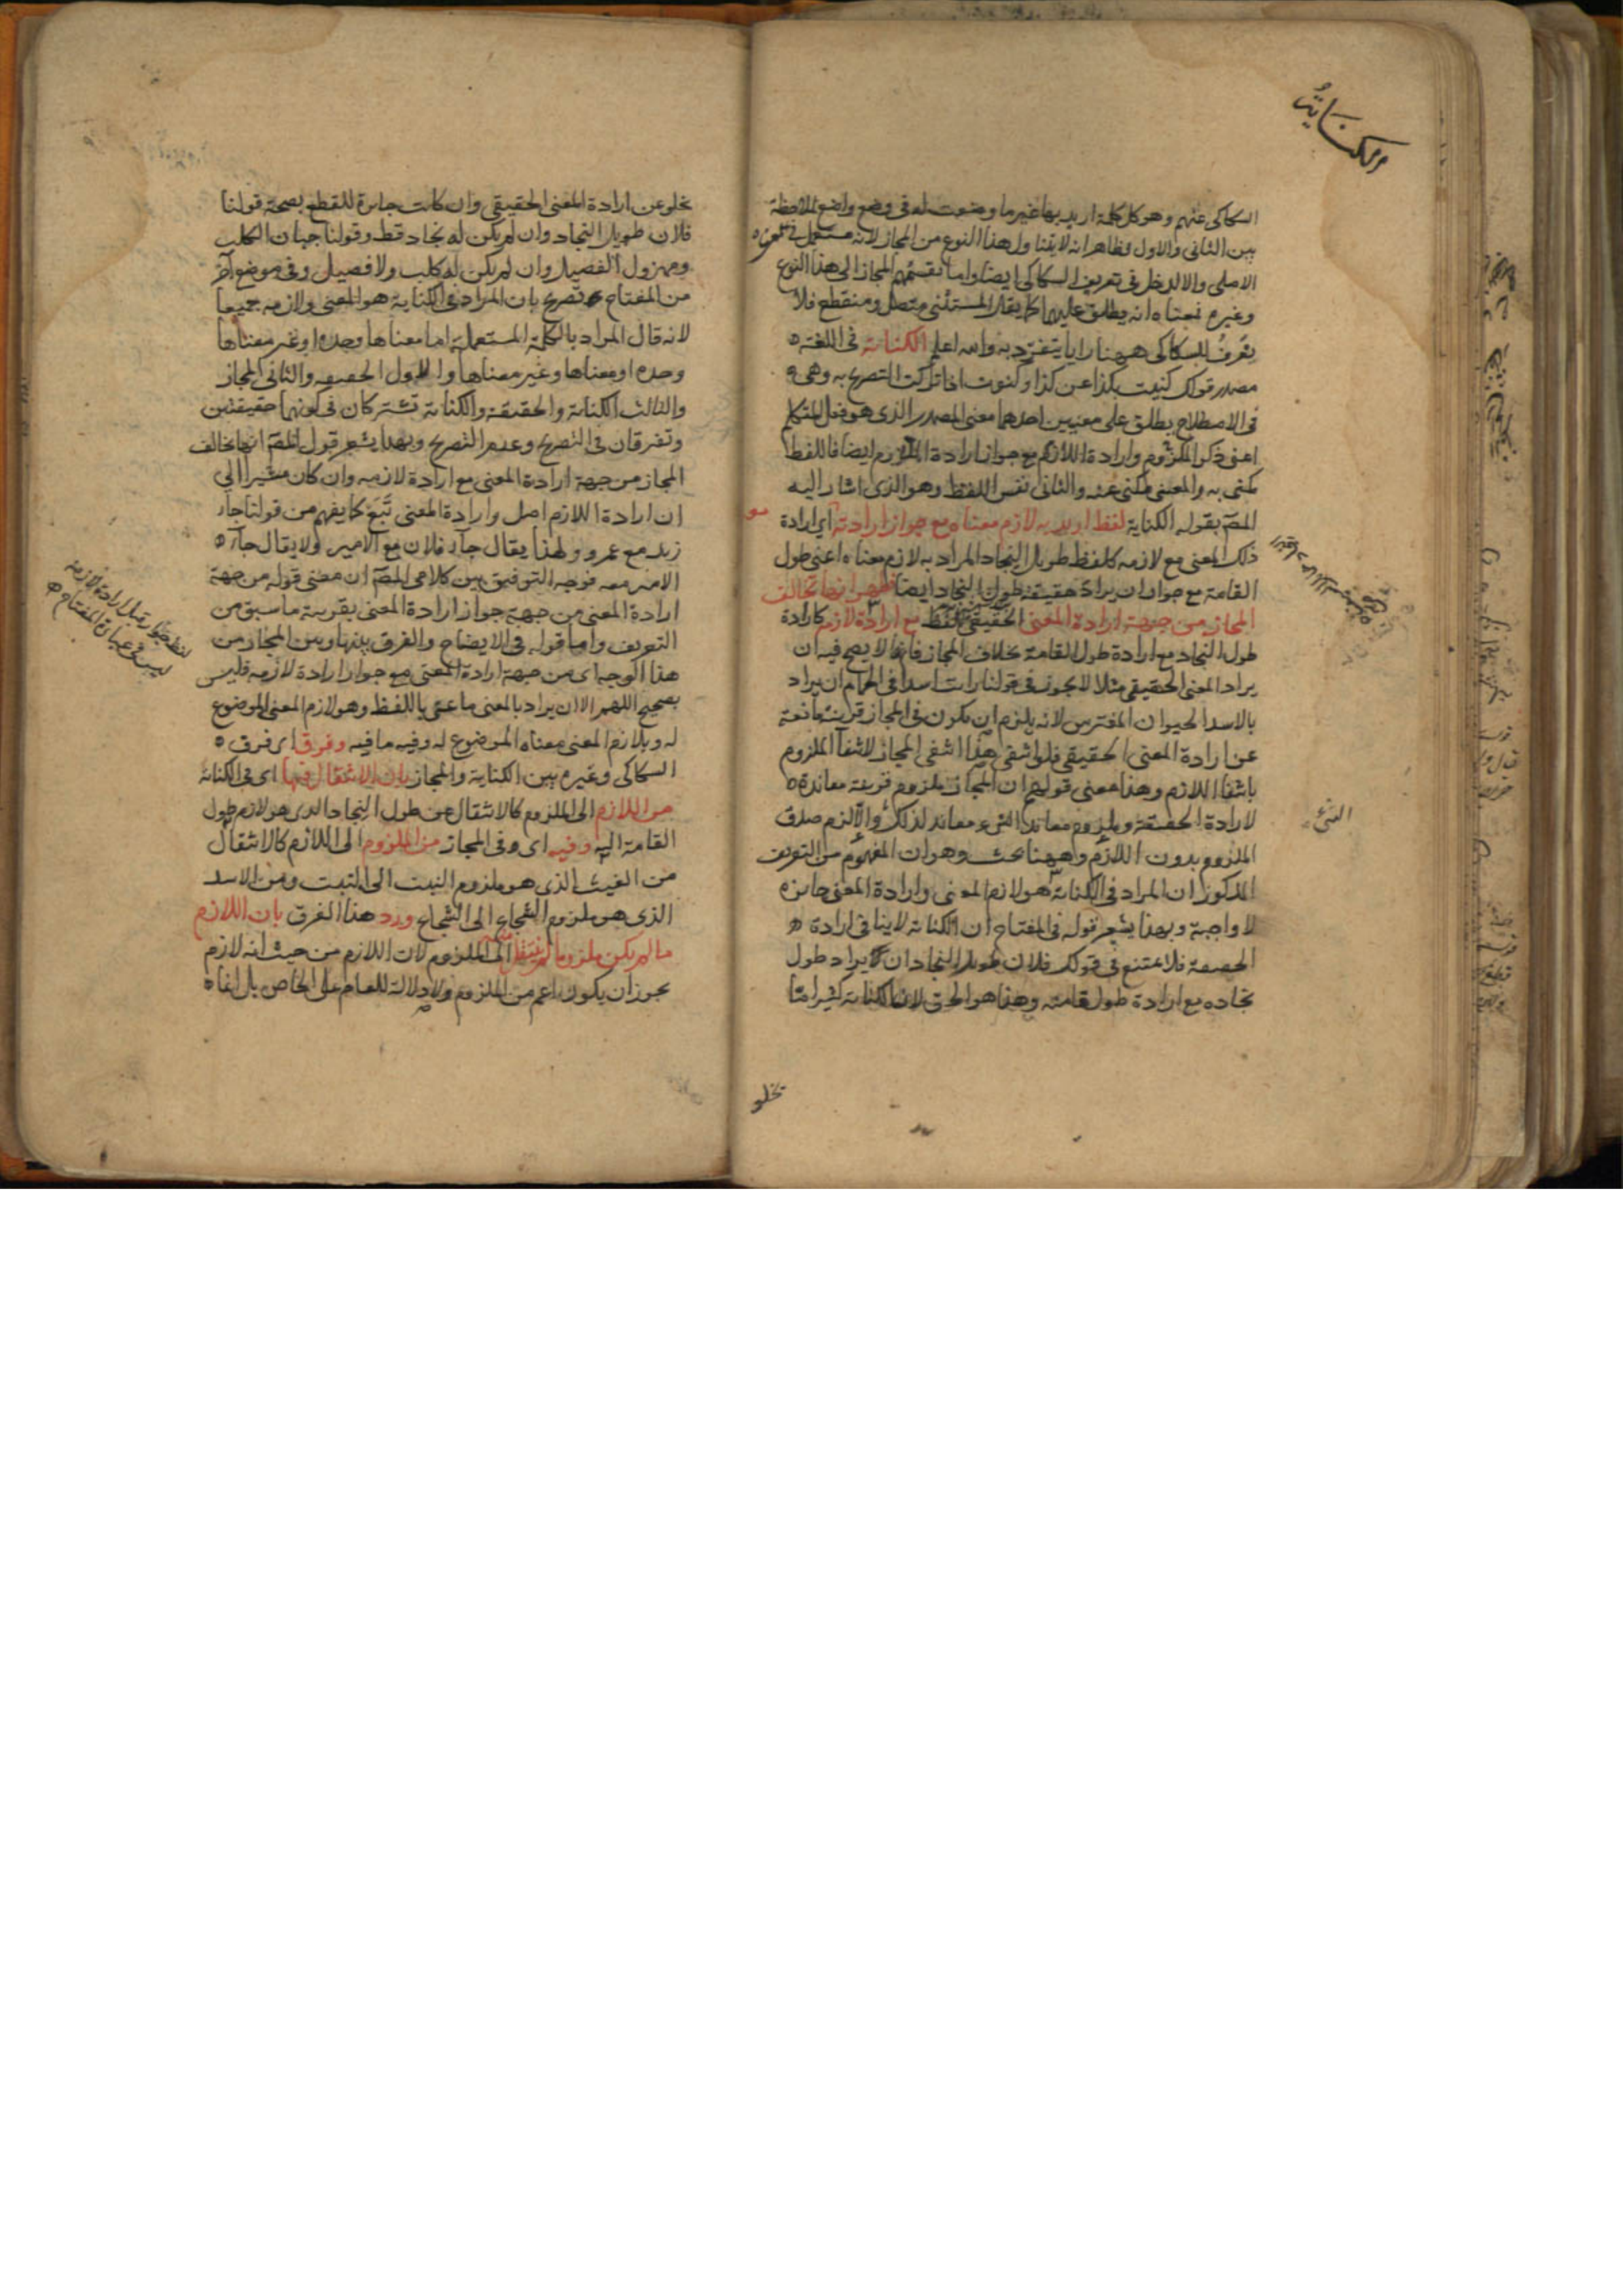 الكنايةُ
السكاكى عنهم وهو كل كلمة اريد بها غير ما وضعت له فى وضع واضع لملاحظة
بين الثانى والاول وظاهر انه لا يتناول هذا النوع من المجاز لانه مستعمل فى معناه
الاصلى والا لدخل فى تعريف السكاكى ايضا واما تقسيمهم المجاز الى هذا النوع
وغيره فمعناه انه يطلق عليهما كما يقال المستثنى متصل ومنقطع فلا
يعرف للسكاكى ههنا رايا يتفرد به والله اعلم الكناية فى اللغة
مصدر قولك كنيت بكذا عن كذا وكنوت اذا تركت التصريح به وهى
فى الاصطلاح يطلق على معنيين احدهما معنى المصدر الذى هو فعل المتكلم
اعنى ذكر الملزوم وارادة اللازم مع جواز ارادة الملزوم ايضا فاللفظ
مكنى به والمعنى مكنى عنه والثانى نفس اللفظ وهو الذى اشار اليه
المص بقوله الكناية لفظ اريد به لازم معناه مع جواز ارادته اى ارادة
ذلك المعنى مع لازمه كلفظ طويل النجاد المراد به لازم معناه اعنى طول
القامة مع جواز ان يراد حقيقة طول النجاد ايضا فظهر انها تخالف
المجاز من جهة ارادة المعنى الحقيقى للفظ مع ارادة لازمه كارادة
طول النجاد مع ارادة طول القامة بخلاف المجاز فانه لا يصح فيه ان
يراد المعنى الحقيقى مثلا لا يجوز فى قولنا رايت اسدا فى الحمام ان يراد
بالاسد الحيوان المفترس لانه يلزم ان يكون فى المجاز قرينة مانعة
عن ارادة المعنى الحقيقى فلو انتفى هذا انتفى المجاز لانتفآ الملزوم
بانتفا اللازم وهذا معنى قولهم ان المجاز ملزوم قرينة معاندة
لارادة الحقيقة وملزوم معاند الشىء معاند لذلك والا لزم صدق
الملزوم بدون اللازم وههنا بحث وهو ان المفهوم من التعريف
المذكور ان المراد فى الكناية هو لازم المعنى وارادة المعنى جائزة
لا واجبة وبهذا يشعر قوله فى المفتاح ان الكناية لا ينافى ارادة
الحقيقة فلا يمتنع فى قولك فلان طويل النجاد ان يراد طول
نجاده مع ارادة طول قامته وهذا هو الحق لان الكناية كثيرا ما
الشئ
تخلو
يخلو عن ارادة المعنى الحقيقى وان كانت جائزة للقطع بصحة قولنا
فلان طويل النجاد وان لم يكن له نجاد قط وقولنا جبان الكلب
ومهزول الفصيل وان لم يكن له كلب ولا فصيل وفى موضع آخر
من المفتاح تصريح بان المراد فى الكناية هو المعنى ولازمه جميعا
لانه قال المراد بالكلمة المستعملة اما معناها وحده او غير معناها
وحده او معناها وغير معناها والاول الحقيقة والثانى المجاز
والثالث الكناية والحقيقة والكناية تشتركان فى كونهما حقيقتين
وتفترقان فى التصريح وعدم التصريح وبهذا يشعر قول المص انها تخالف
المجاز من جهة ارادة المعنى مع ارادة لازمه وان كان مشيرا الى
ان ارادة اللازم اصل وارادة المعنى تَبَع كما يفهم من قولنا جاء
زيد مع عمرو ولهذا يقال جاء فلان مع الامير ولا يقال جاء
الامير معه فوجه التوفيق بين كلامى المص ان معنى قوله من جهة
ارادة المعنى من جهة جواز ارادة المعنى بقرينة ما سبق من
التعريف واما قوله فى الايضاح والفرق بينها وبين المجاز من
هذا الوجه اى من جهة ارادة المعنى مع جواز ارادة لازمه فليس
بصحيح اللهم الا ان يراد بالمعنى ما عنى باللفظ وهو لازم المعنى الموضوع
له وبلازم المعنى معناه الموضوع له وفيه ما فيه وفرق اى فرق
السكاكى وغيره بين الكناية والمجاز بان الانتقال فيها اى فى الكناية
من اللازم الى الملزوم كالانتقال من طول النجاد الذى هو لازم طول
القامة اليه وفيه اى وفى المجاز من الملزوم الى اللازم كالانتقال
من الغيث الذى هو ملزوم النبت الى النبت ومن الاسد
الذى هو ملزوم الشجاع الى الشجاع ورد هذا الفرق بان اللازم
ما لم يكن ملزوما لم ينتقل منه الى الملزوم لان اللازم من حيث انه لازم
يجوز ان يكون اعم من الملزوم ولا دلالة للعام على الخاص بل انما
لفظ جواز قبل ارادة لازمه
ليس فى عبارة المفتاح